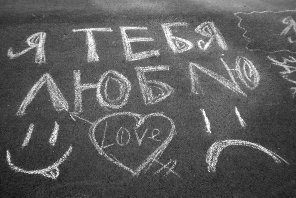 Я ТЕБЯ
ЛЮБЛЮ
Love